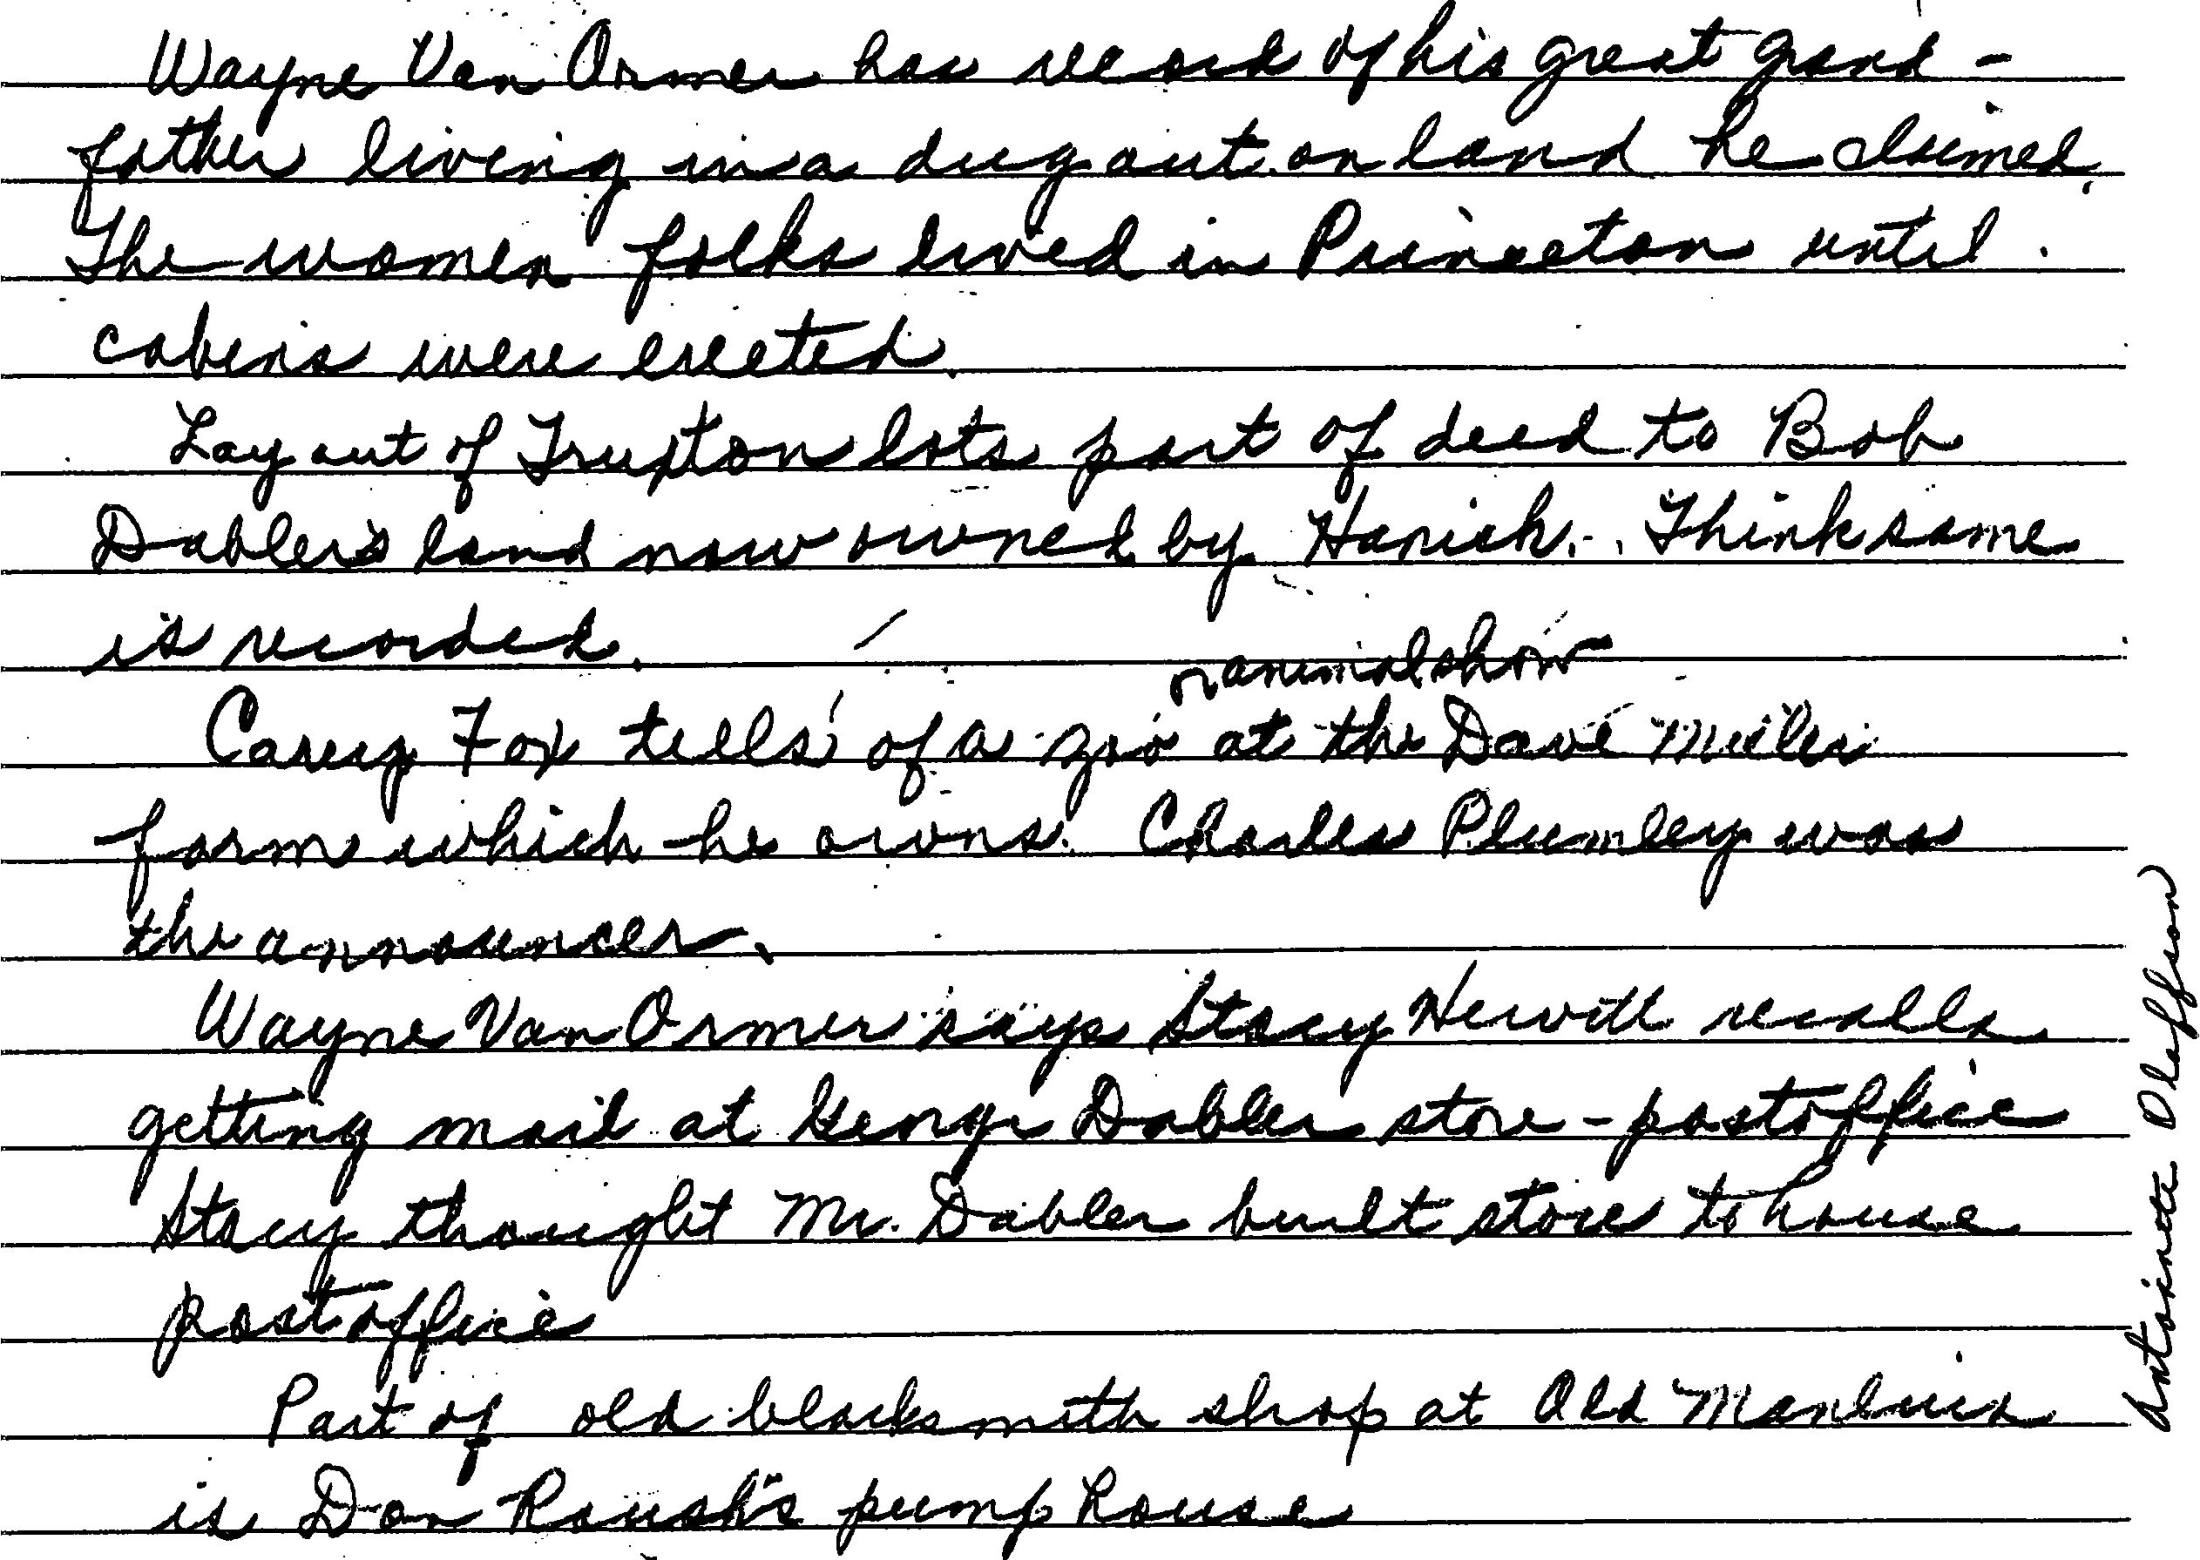 Wayne Van Ormer has record of his great grand-
father living in a dug out on land he claimed.
The women folks lived in Princeton until
cabins were erected.
Lay out of Truxton lots part of deed to Bob
Dabler's land now owned by Hanich. Think same
is recorded.
or animal show
Carey Fox tells of a zoo at the Dave Miller
farm which he owns. Charles Plumley was
the announcer.
Wayne Van Ormer says Stacy Hewitt recalls
getting mail at George Dabler store - postoffice
Stacy thought Mr. Dabler built store to house
postoffice
Part of old blacksmith shop at Old Manlius
is Don Roush's pump house
Antoinette Olaffson